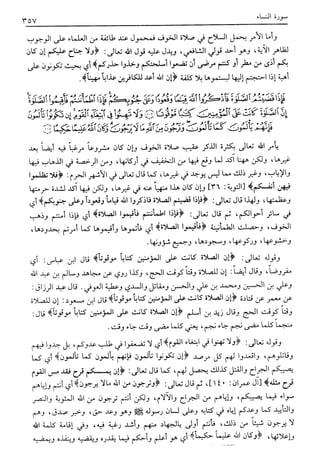 سورة النساء ٣٥٧
وأما الأمر بحمل السلاح في صلاة الخوف فمحمول عند طائفة من العلماء على الوجوب
لظاهر الآية، وهو أحد قولي الشافعي، ويدل عليه قول الله تعالى: ﴿ولا جناح عليكم إن كان
بكم أذى من مطر أو كنتم مرضى أن تضعوا أسلحتكم وخذوا حذركم﴾ أي بحيث تكونون على
أهبة إذا احتجتم إليها لبستموها بلا كلفة ﴿إن الله أعد للكافرين عذاباً مهيناً﴾.
فإذا قضيتم الصلاة فاذكروا الله قياما وقعودا وعلى جنوبكم فإذا اطمأننتم فأقيموا الصلاة
إن الصلاة كانت على المؤمنين كتابا موقوتا ولا تهنوا في ابتغاء القوم إن تكونوا تألمون
فإنهم يألمون كما تألمون وترجون من الله ما لا يرجون وكان الله عليما حكيما
يأمر الله تعالى بكثرة الذكر عقيب صلاة الخوف وإن كان مشروعاً مرغباً فيه أيضاً بعد
غيرها، ولكن ههنا آكد لما وقع فيها من التخفيف في أركانها، ومن الرخصة في الذهاب فيها
والإياب، وغير ذلك مما ليس يوجد في غيرها، كما قال تعالى في الأشهر الحرم: ﴿فلا تظلموا
فيهن أنفسكم﴾ [التوبة: ٣٦] وإن كان هذا منهياً عنه في غيرها، ولكن فيها آكد لشدة حرمتها
وعظمتها، ولهذا قال تعالى: ﴿فإذا قضيتم الصلاة فاذكروا الله قياماً وقعوداً وعلى جنوبكم﴾ أي
في سائر أحوالكم، ثم قال تعالى: ﴿فإذا اطمأننتم فأقيموا الصلاة﴾ أي فإذا أمنتم وذهب
الخوف، وحصلت الطمأنينة ﴿فأقيموا الصلاة﴾ أي فأتموها وأقيموها كما أمرتم بحدودها،
وخشوعها، وركوعها، وسجودها، وجميع شؤونها.
وقوله تعالى: ﴿إن الصلاة كانت على المؤمنين كتاباً موقوتاً﴾ قال ابن عباس: أي
مفروضاً، وقال أيضاً: إن للصلاة وقتاً كوقت الحج، وكذا روي عن مجاهد وسالم بن عبد الله
وعلي بن الحسين ومحمد بن علي والحسن ومقاتل والسدي وعطية العوفي. قال عبد الرزاق:
عن معمر عن قتادة ﴿إن الصلاة كانت على المؤمنين كتاباً موقوتاً﴾ قال ابن مسعود: إن للصلاة
وقتاً كوقت الحج وقال زيد بن أسلم ﴿إن الصلاة كانت على المؤمنين كتاباً موقوتاً﴾ قال:
منجماً كلما مضى نجم جاء نجم، يعني كلما مضى وقت جاء وقت.
وقوله تعالى: ﴿ولا تهنوا في ابتغاء القوم﴾ أي لا تضعفوا في طلب عدوكم، بل جدوا فيهم
وقاتلوهم، واقعدوا لهم كل مرصد ﴿إن تكونوا تألمون فإنهم يألمون كما تألمون﴾ أي كما
يصيبكم الجراح والقتل كذلك يحصل لهم، كما قال تعالى: ﴿إن يمسسكم قرح فقد مس القوم
قرح مثله﴾ [آل عمران: ١٤٠]، ثم قال تعالى: ﴿وترجون من الله ما لا يرجون﴾ أي أنتم وإياهم
سواء فيما يصيبكم، وإياهم من الجراح والآلام، ولكن أنتم ترجون من الله المثوبة والنصر
والتأييد كما وعدكم إياه في كتابه وعلى لسان رسوله ﷺ وهو وعد حق، وخبر صدق، وهم
لا يرجون شيئاً من ذلك، فأنتم أولى بالجهاد منهم وأشد رغبة فيه، وفي إقامة كلمة الله
وإعلائها، ﴿وكان الله عليماً حكيماً﴾ أي هو أعلم وأحكم فيما يقدره ويقضيه وينفذه ويمضيه